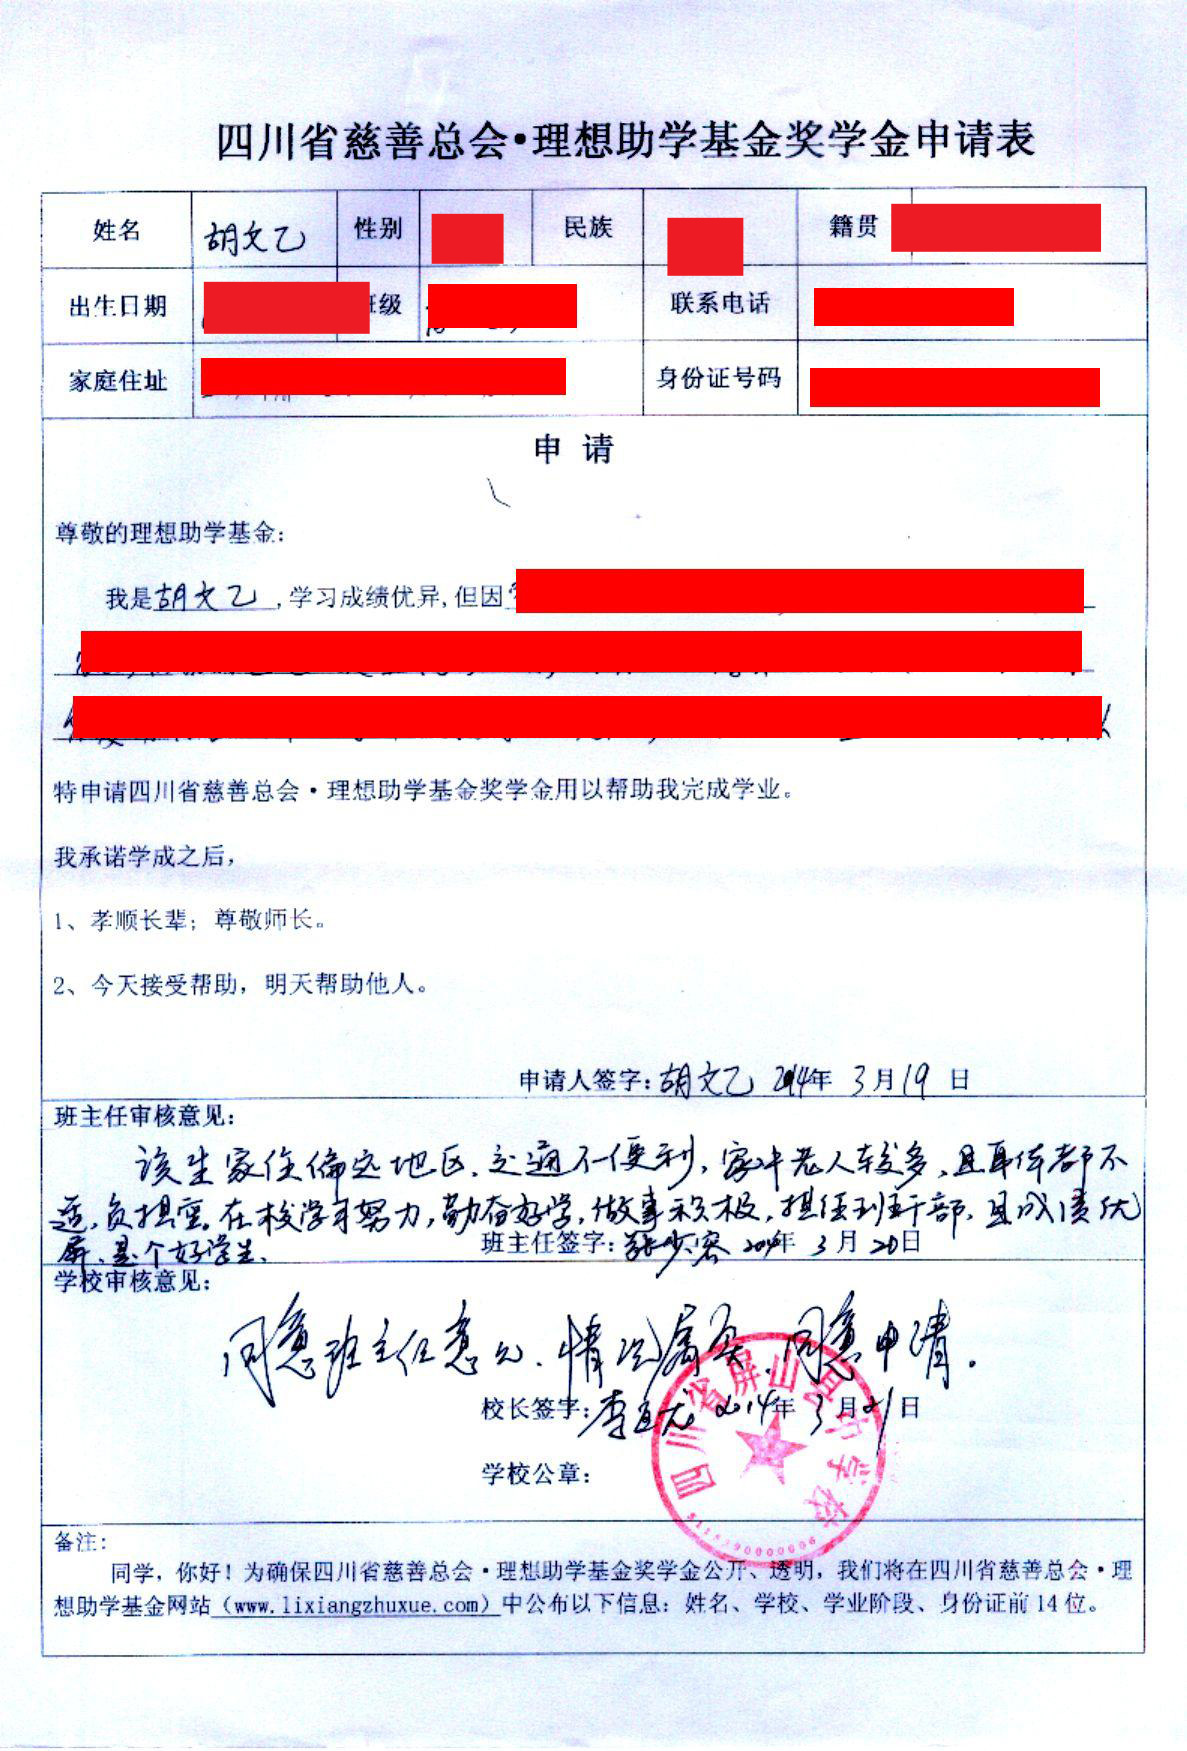 四川省慈善总会·理想助学基金奖学金申请表
姓名 胡文乙 性别 民族 籍贯
出生日期 级 联系电话
家庭住址 身份证号码
申 请
尊敬的理想助学基金：
我是胡文乙,学习成绩优异,但因
特申请四川省慈善总会·理想助学基金奖学金用以帮助我完成学业。
我承诺学成之后，
1、孝顺长辈；尊敬师长。
2、今天接受帮助，明天帮助他人。
申请人签字：胡文乙 2014年 3月19日
班主任审核意见：
该生家住偏远地区，交通不便利，家中老人较多，且身体都不
适，负担重。在校学习努力，勤奋好学，做事积极，担任班干部，且成绩优
异，是个好学生。
班主任签字： 2014年 3月20日
学校审核意见：
同意班主任意见，情况属实，同意申请。
校长签字： 2014年 3月21日
学校公章：
四川省屏山县中学校
备注：
同学，你好！为确保四川省慈善总会·理想助学基金奖学金公开、透明，我们将在四川省慈善总会·理
想助学基金网站（www.lixiangzhuxue.com）中公布以下信息：姓名、学校、学业阶段、身份证前14位。